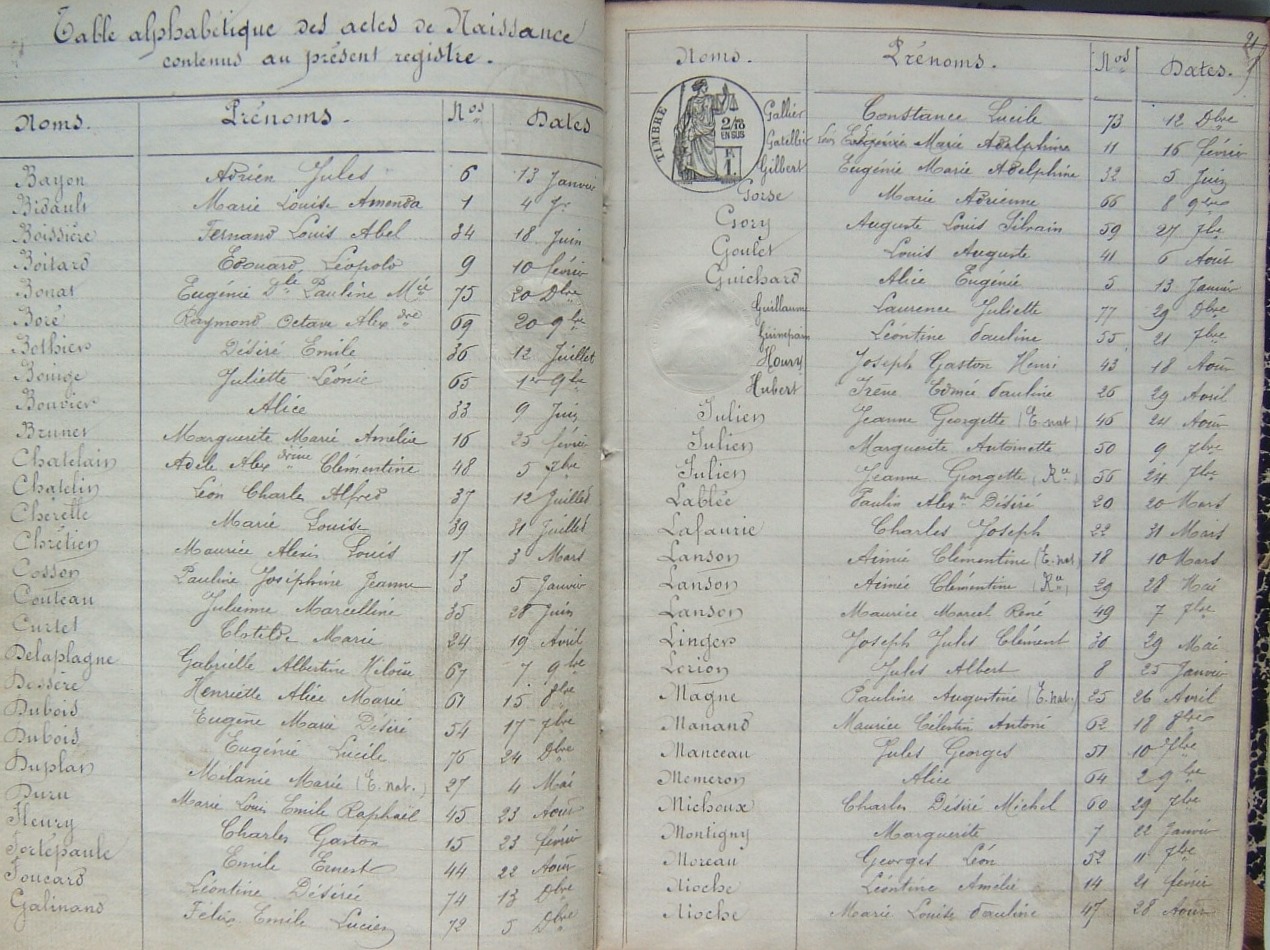 Table alphabétique des actes de Naissance
contenus au présent registre.
Noms. Prénoms. Nos Dates
Bayon Adrien Jules 6 13 Janvier
Bidault Marie Louise Amanda 1 4 Jr
Boissière Fernand Louis Abel 34 18 Juin
Boitard Edouard Léopold 9 10 février
Bonat Eugénie Dle Pauline Mie 75 20 Dbre
Boré Raymond Octave Alexdre 69 20 9bre
Bothier Désiré Emile 36 12 Juillet
Bouige Juliette Léonie 65 1er 9bre
Bouvier Alice 33 9 Juin
Brunet Marguerite Marie Amélie 16 25 février
Chatelain Adèle Alexdrine Clémentine 48 5 7bre
Chatelin Léon Charles Alfred 37 12 Juillet
Chérelle Marie Louise 39 31 Juillet
Chrétien Maurice Alexis Louis 17 3 Mars
Cosson Pauline Joséphine Jeanne 3 5 Janvier
Couteau Julienne Marcelline 35 28 Juin
Curtet Clotilde Marie 24 19 Avril
Delaplagne Gabrielle Albertine Héloïse 67 7 9bre
Dessère Henriette Alice Marie 61 15 8bre
Dubois Eugène Marie Désiré 54 17 7bre
Dubois Eugénie Lucile 76 24 Dbre
Duplan Mélanie Marie (E. nat.) 27 4 Mai
Duru Marie Louis Emile Raphaël 45 23 Août
Fleury Charles Gaston 15 23 février
Fortépaule Emile Ernest 44 22 Août
Foucard Léontine Désirée 74 13 Dbre
Galinand Félix Emile Lucien 72 5 Dbre
21
Noms. Prénoms. Nos Dates.
TIMBRE
2/10
EN SUS
1.
Gallier Constance Lucile 73 12 Dbre
Gatellier Eugénie Marie Adelphine 11 16 février
Gilbert Eugénie Marie Adelphine 32 5 Juin
Gorse Marie Adrienne 66 8 9bre
Gory Auguste Louis Silvain 59 27 7bre
Goulet Louis Auguste 41 6 Août
Guichard Alice Eugénie 5 13 Janvier
Guillaume Laurence Juliette 77 29 Dbre
Guinepain Léontine Pauline 55 21 7bre
Houry Joseph Gaston Henri 43 18 Août
Hubert Irène Edmée Pauline 26 29 Avril
Julien Jeanne Georgette (E. nat) 46 24 Août
Julien Marguerite Antoinette 50 9 7bre
Julien Jeanne Georgette (Ron) 56 24 7bre
Lablée Paulin Alexre Désiré 20 20 Mars
Lafaurie Charles Joseph 22 31 Mars
Lanson Aimée Clémentine (E. nat) 18 10 Mars
Lanson Aimée Clémentine (Ron) 29 28 Mai
Lanson Maurice Marcel René 49 7 7bre
Linger Joseph Jules Clément 30 29 Mai
Lorion Jules Albert 8 25 Janvier
Magne Pauline Augustine (E. nat.) 25 26 Avril
Manand Maurice Célestin Antoine 62 18 8bre
Manceau Jules Georges 51 10 7bre
Memeron Alice 64 2 9bre
Michoux Charles Désiré Michel 60 29 7bre
Montigny Marguerite 7 22 Janvier
Moreau Georges Léon 52 11 7bre
Nioche Léontine Amélie 14 21 février
Nioche Marie Louise Pauline 47 28 Août